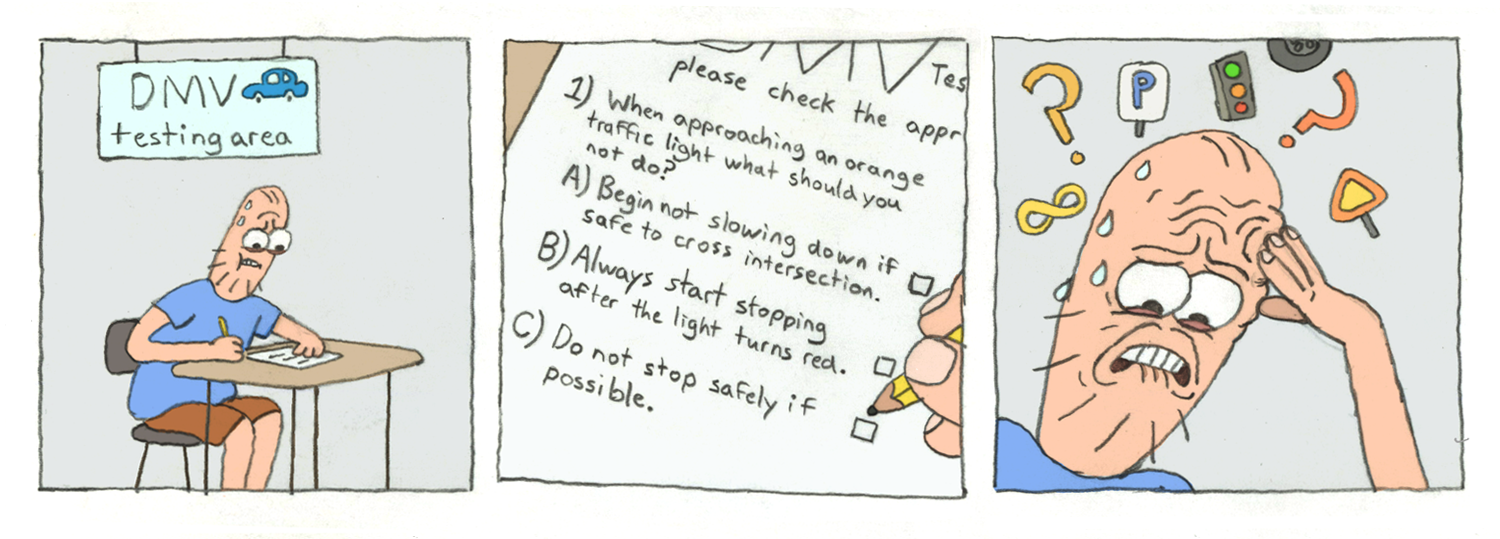 DMV
testing area
Tes
please check the appr
1) When approaching an orange
traffic light what should you
not do?
A) Begin not slowing down if
safe to cross intersection.
B) Always start stopping
after the light turns red.
C) Do not stop safely if
possible.
P